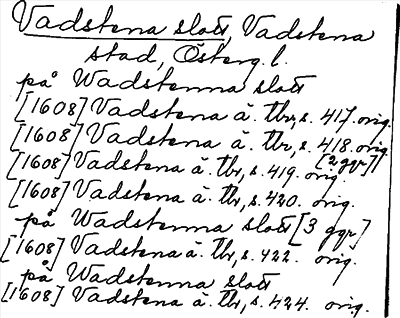 Vadstena slott, Vadstena
stad, Österg. l.
på Wadstenna slott
[1608] Vadstena ä. tbr, s. 417. orig.
[1608] Vadstena ä. tbr, s. 418. orig.
[2 ggr]
[1608] Vadstena ä. tbr, s. 419. orig.
[1608] Vadstena ä. tbr, s. 420. orig.
på Wadstenna slott [3 ggr]
[1608] Vadstena ä. tbr, s. 422. orig.
på Wadstenna slott
[1608] Vadstena ä. tbr, s. 424. orig.